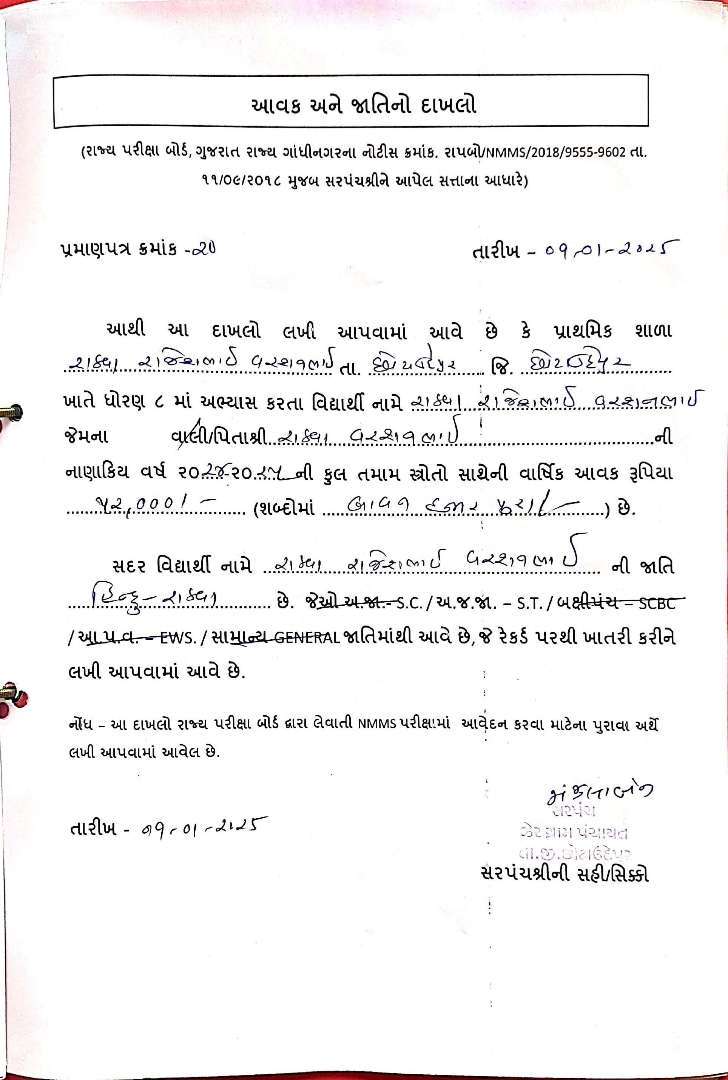 આવક અને જાતિનો દાખલો
(રાજ્ય પરીક્ષા બોર્ડ, ગુજરાત રાજ્ય ગાંધીનગરના નોટીસ ક્રમાંક. રાપબો/NMMS/2018/9555-9602 તા.
૧૧/૦૯/૨૦૧૮ મુજબ સરપંચશ્રીને આપેલ સત્તાના આધારે)
પ્રમાણપત્ર ક્રમાંક -૨૦ તારીખ - ૦૧-૦૧-૨૦૨૫
આથી આ દાખલો લખી આપવામાં આવે છે કે પ્રાથમિક શાળા
રાઠવા રાજેશભાઈ વરશનભાઈ તા. છોટાઉદેપુર જિ. છોટાઉદેપુર
ખાતે ધોરણ ૮ માં અભ્યાસ કરતા વિદ્યાર્થી નામે રાઠવા રાજેશભાઈ વરશનભાઈ
જેમના વાલી/પિતાશ્રી રાઠવા વરશનભાઈ ની
નાણાકિય વર્ષ ૨૦૨૪૨૦૨૫ ની કુલ તમામ સ્ત્રોતો સાથેની વાર્ષિક આવક રૂપિયા
૫૨,૦૦૦/- (શબ્દોમાં બાવન હજાર પુરા/-) છે.
સદર વિદ્યાર્થી નામે રાઠવા રાજેશભાઈ વરશનભાઈ ની જાતિ
હિન્દુ-રાઠવા છે. જેઓ અ.જા.- S.C. / અ.જ.જા. – S.T. / બક્ષીપંચ – SCBC
/ આ.પ.વ. – EWS. / સામાન્ય GENERAL જાતિમાંથી આવે છે, જે રેકર્ડ પરથી ખાતરી કરીને
લખી આપવામાં આવે છે.
નોંધ – આ દાખલો રાજ્ય પરીક્ષા બોર્ડ દ્વારા લેવાતી NMMS પરીક્ષામાં આવેદન કરવા માટેના પુરાવા અર્થે
લખી આપવામાં આવેલ છે.
મંજુલાબેન
સરપંચ
તારીખ - ૦૧-૦૧-૨૦૨૫
ઝેર ગ્રામ પંચાયત
તા.જી.છોટાઉદેપુર
સરપંચશ્રીની સહી/સિક્કો